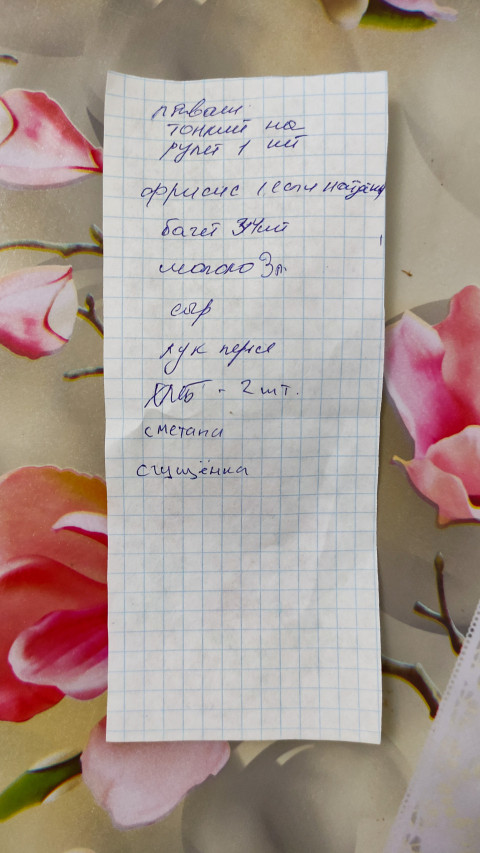 лаваш
тонкий на
рулет 1 шт
фрисис 1 если найдёш
багет шт
молоко 3 л.
сыр
лук перо
хлеб - 2 шт.
сметана
сгущёнка